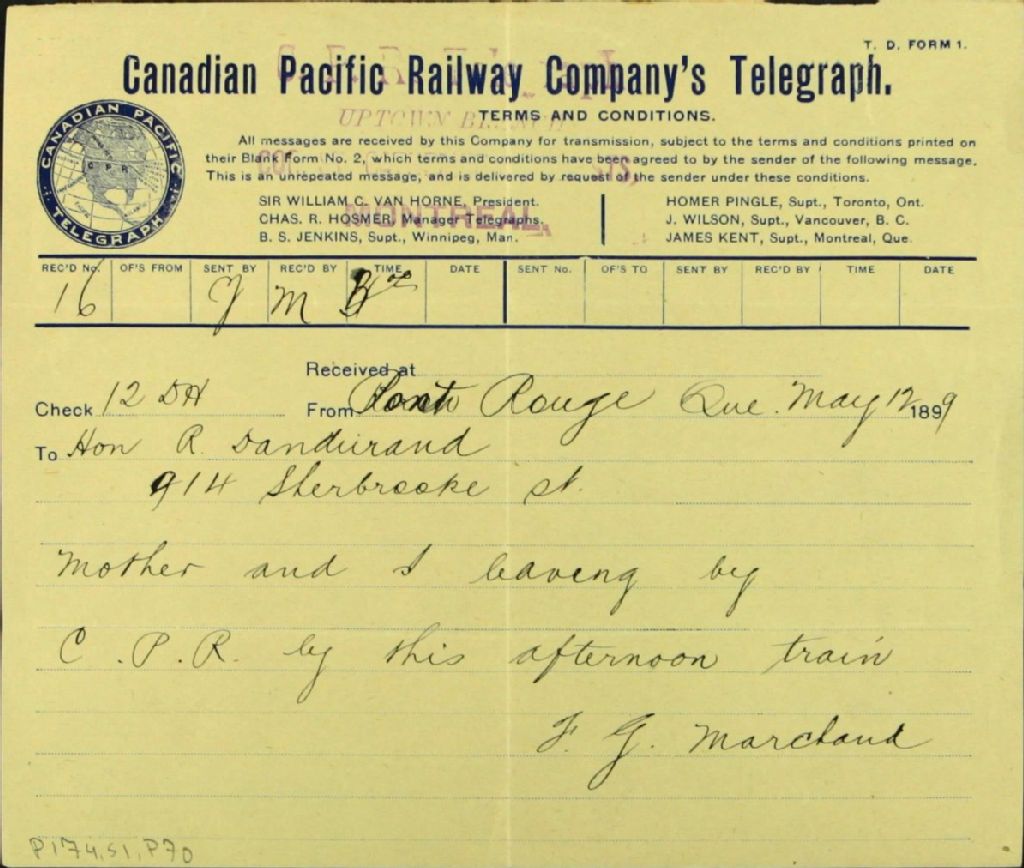 T. D. FORM 1.
Canadian Pacific Railway Company's Telegraph.
UPTOWN
TERMS AND CONDITIONS.
CANADIAN PACIFIC
C P R
TELEGRAPH
All messages are received by this Company for transmission, subject to the terms and conditions printed on
their Blank Form No. 2, which terms and conditions have been agreed to by the sender of the following message.
This is an unrepeated message, and is delivered by request of the sender under these conditions.
SIR WILLIAM C. VAN HORNE, President.
CHAS. R. HOSMER, Manager Telegraphs.
B. S. JENKINS, Supt., Winnipeg, Man.
HOMER PINGLE, Supt., Toronto, Ont.
J. WILSON, Supt., Vancouver, B. C.
JAMES KENT, Supt., Montreal, Que.
MONTREAL.
REC'D No. OF'S FROM SENT BY REC'D BY TIME DATE SENT No. OF'S TO SENT BY REC'D BY TIME DATE
16 J M
Received at
Check 12 DH From Pont Rouge Que. May 12 1899
To Hon R. Dandurand
914 Sherbrooke st.
Mother and I leaving by
C.P.R. by this afternoon train
F. G. Marchand
P174,S1,P70